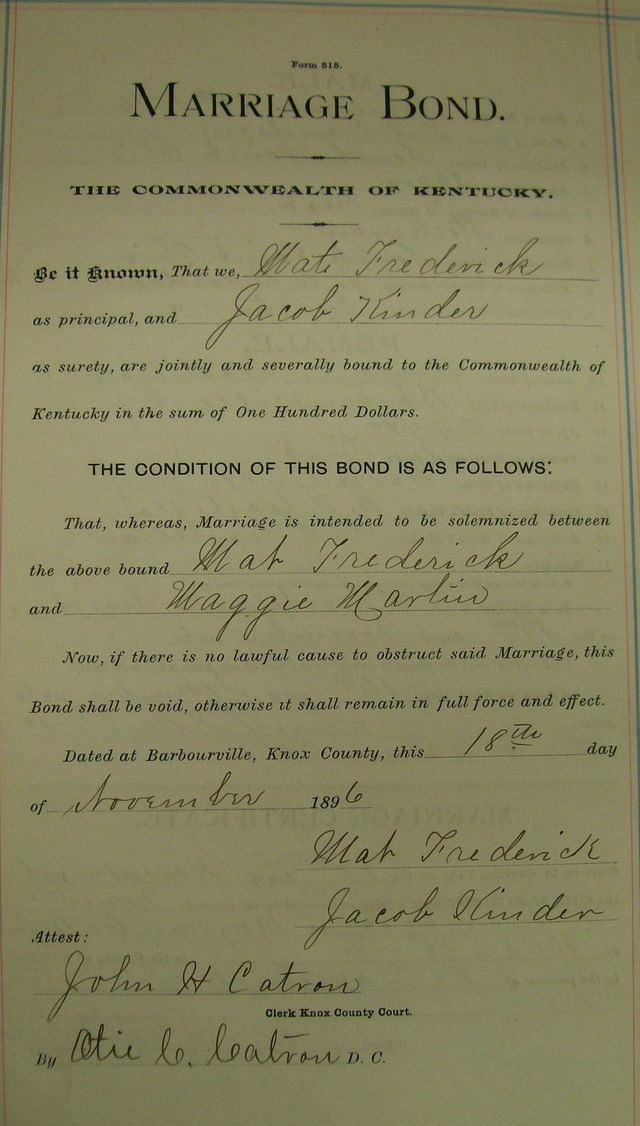 Form 515.
MARRIAGE BOND.
THE COMMONWEALTH OF KENTUCKY.
Be it Known, That we, Mat Frederick
as principal, and Jacob Kinder
as surety, are jointly and severally bound to the Commonwealth of
Kentucky in the sum of One Hundred Dollars.
THE CONDITION OF THIS BOND IS AS FOLLOWS:
That, whereas, Marriage is intended to be solemnized between
the above bound Mat Frederick
and Maggie Martin
Now, if there is no lawful cause to obstruct said Marriage, this
Bond shall be void, otherwise it shall remain in full force and effect.
Dated at Barbourville, Knox County, this 18th day
of November 1896
Mat Frederick
Jacob Kinder
Attest:
John H Catron
Clerk Knox County Court.
By Otie C. Catron D. C.